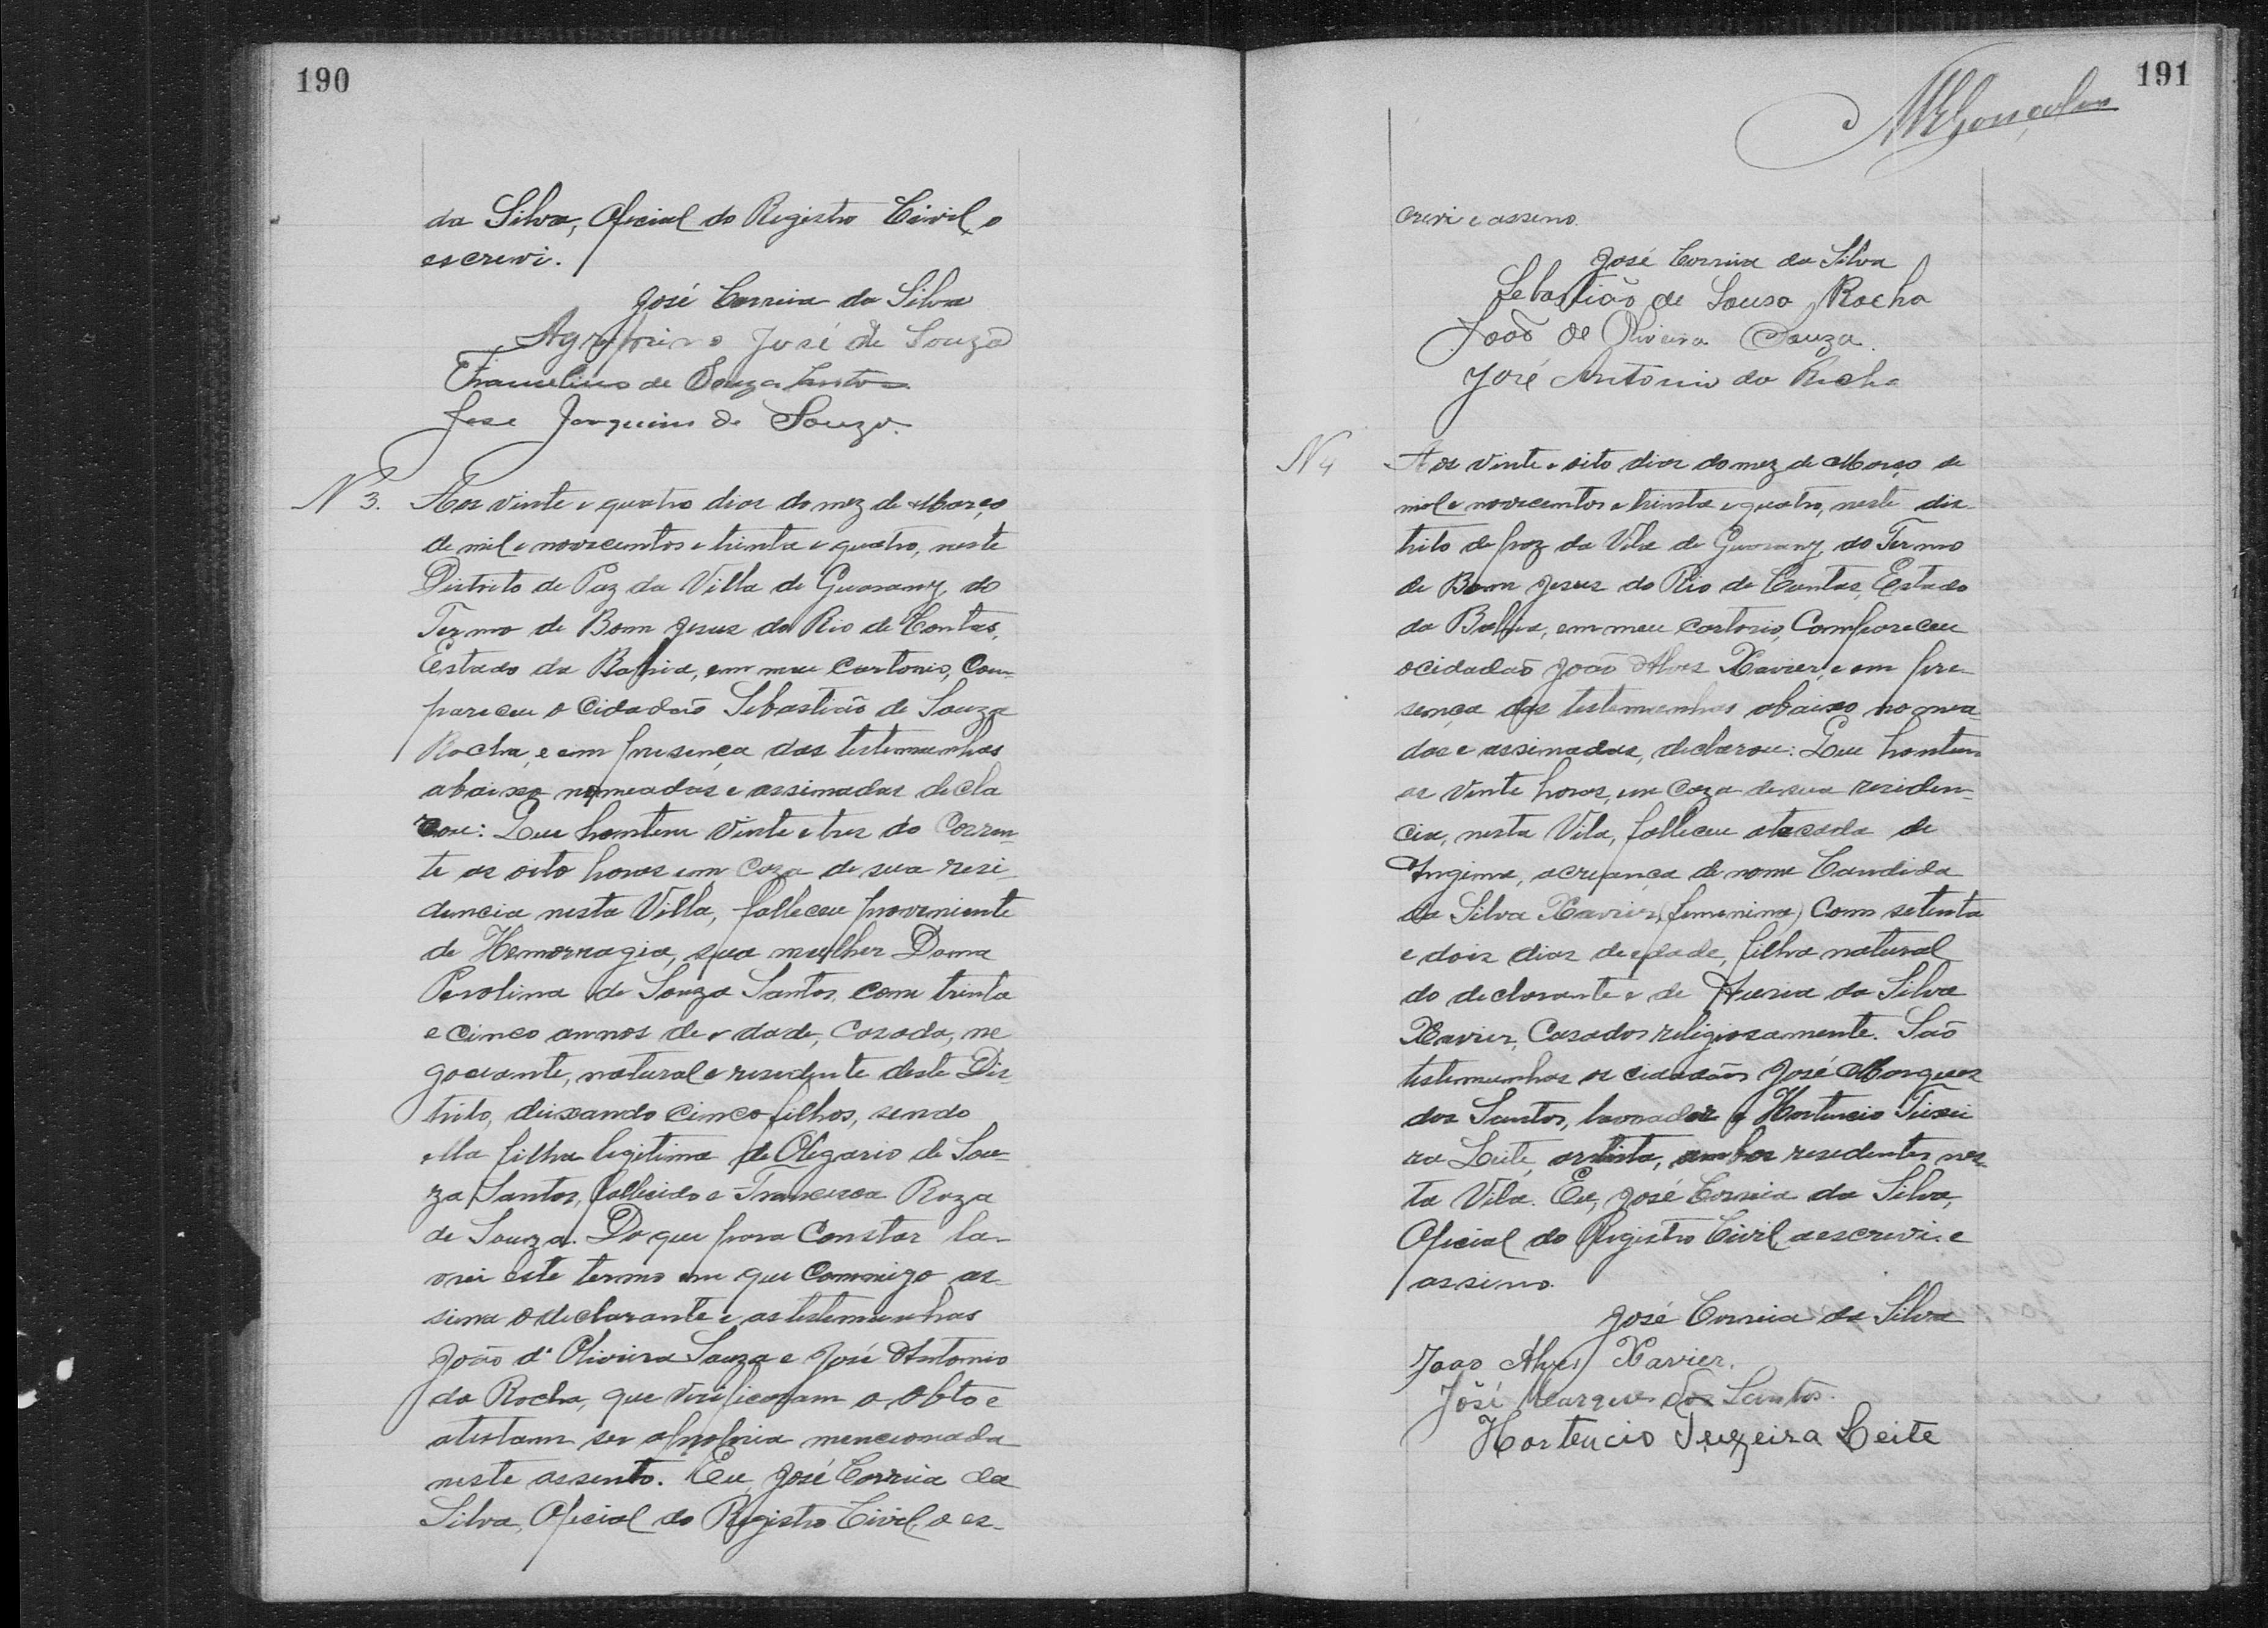 190
da Silva, Oficial do Registro Civil, o
escrevi.
José Correia da Silva
Agripino José de Souza
Francelino de Souza Santos
Jose Joaquim de Souza.
Nº 3. Aos vinte e quatro dias do mez de Março
de mil e novecentos e trinta e quatro, neste
Districto de Paz da Villa de Guarany, do
Termo de Bom Jesus do Rio de Contas,
Estado da Bahia, em meu cartorio, Com-
pareceu o Cidadão Sebastião de Souza
Rocha, e em presença das testemunhas
abaixo nomeadas e assinadas decla
rou: Que hontem vinte e tres do Corren-
te as oito horas em Caza de sua resi-
dencia nesta Villa, falleceu proveniente
de Hemorragia, sua mulher Dona
Perolina de Souza Santos, com trinta
e cinco annos de edade, Casada, ne
gociante, natural e residente deste Dis-
trito, deixando cinco filhos, sendo
ella filha legitima de Olegario de Sou-
za Santos, fallecido e Francisca Roza
de Souza. Do que para Constar la-
vrei este termo em que Commigo as-
sina o declarante e as testemunhas
João d' Oliveira Souza e José Antonio
da Rocha, que verificaram o obto e
atestam ser a propria mencionada
neste assento. Eu, José Correia da
Silva, Oficial do Registro Civil, o es-
191
MRGonçalves
crevi e assino.
José Correia da Silva
Sebastião de Sousa Rocha
João de Oliveira Souza.
José Antonio da Rocha
Nº 4 Aos vinte e oito dias do mez de Março de
mil e novecentos e trinta e quatro, neste dis-
trito de paz da Vila de Guarany, do Termo
de Bom Jesus do Rio de Contas, Estado
da Bahia, em meu cartorio, Compareceu
o cidadão João Alves Xavier, e em pre-
sença das testemunhas abaixo nomea-
das e assinadas, declarou: Que hontem
as vinte horas, em Caza de sua residen-
cia, nesta Vila, falleceu atacada de
Ingina, a creança de nome Candida
da Silva Xavier, (femenina) Com setenta
e dois dias de edade, filha natural
do declarante e de Auria da Silva
Xavier, Casados religiosamente. São
testemunhas os cidadãos José Marques
dos Santos, lavrador e Hortencio Teixei
ra Leite, artista, ambos residentes nes-
ta Vila. Eu, José Correia da Silva,
Oficial do Registro Civil, o escrevi e
assino.
José Correia da Silva
Joao Alves Xavier.
José Marques dos Santos.
Hortencio Teixeira Leite